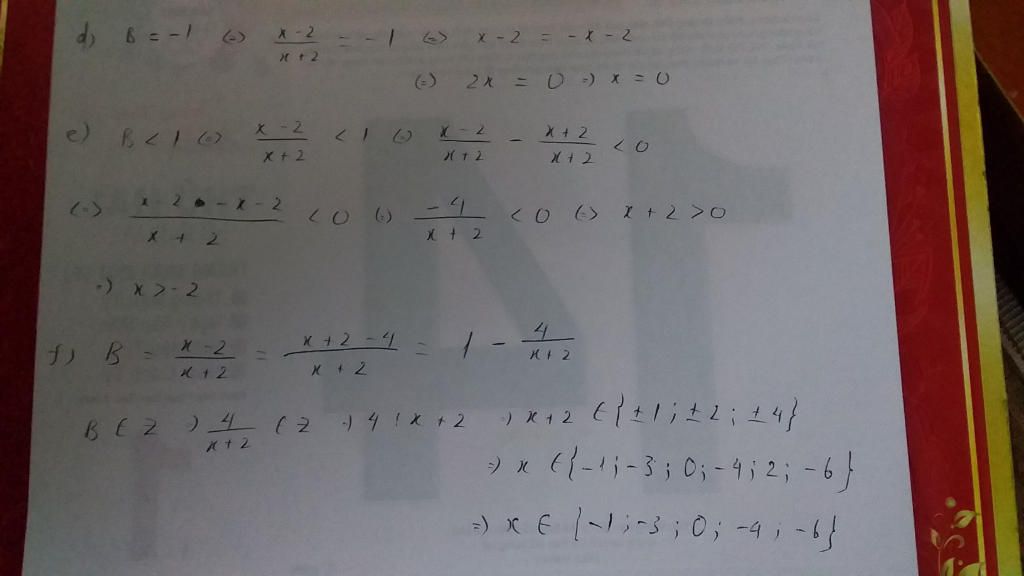 d) B = -1 (=) x-2/x+2 = -1 (=) x-2 = -x-2
(=) 2x = 0 =) x = 0
e) B < 1 (=) x-2/x+2 < 1 (=) x-2/x+2 - x+2/x+2 < 0
(=) x-2-x-2/x+2 < 0 (=) -4/x+2 < 0 (=) x+2 > 0
=) x > -2
f) B = x-2/x+2 = x+2-4/x+2 = 1 - 4/x+2
B ∈ Z =) 4/x+2 ∈ Z =) 4 ⋮ x+2 =) x+2 ∈ {±1; ±2; ±4}
=) x ∈ {-1; -3; 0; -4; 2; -6}
=) x ∈ {-1; -3; 0; -4; -6}